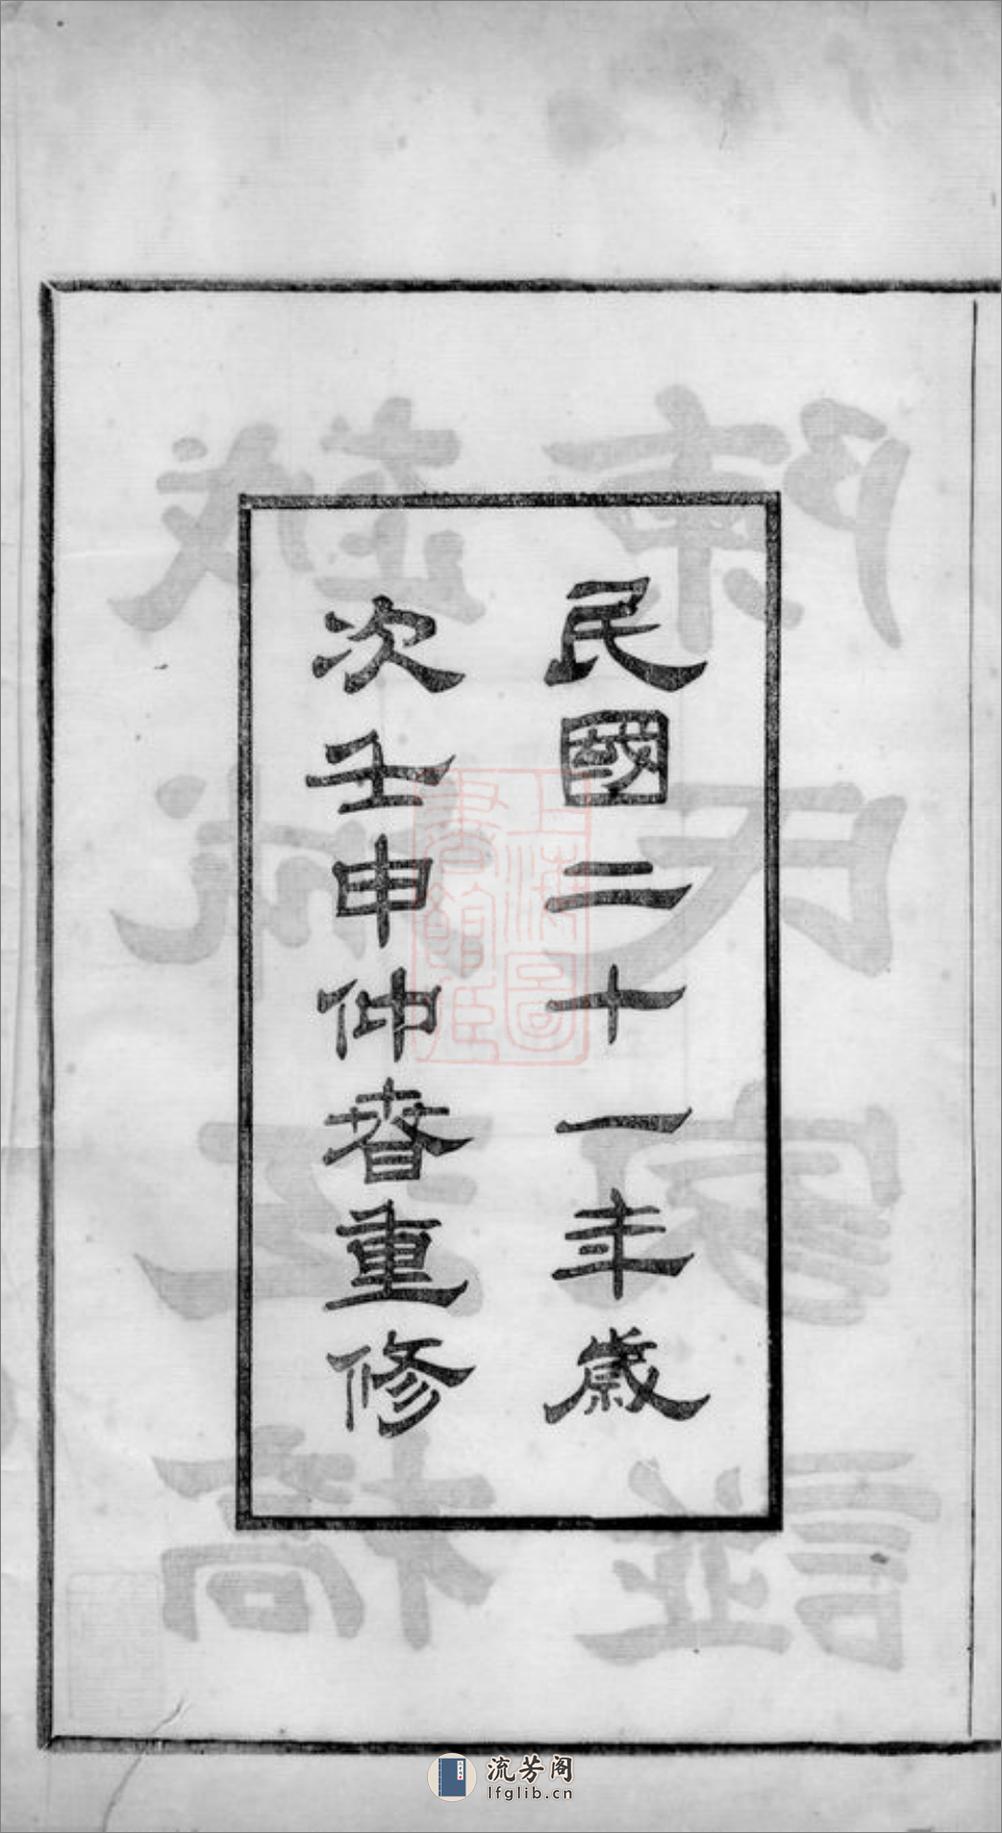 民國二十一年歲
次壬申仲春重修
上海圖
書館臧
流芳阁
lfglib.cn